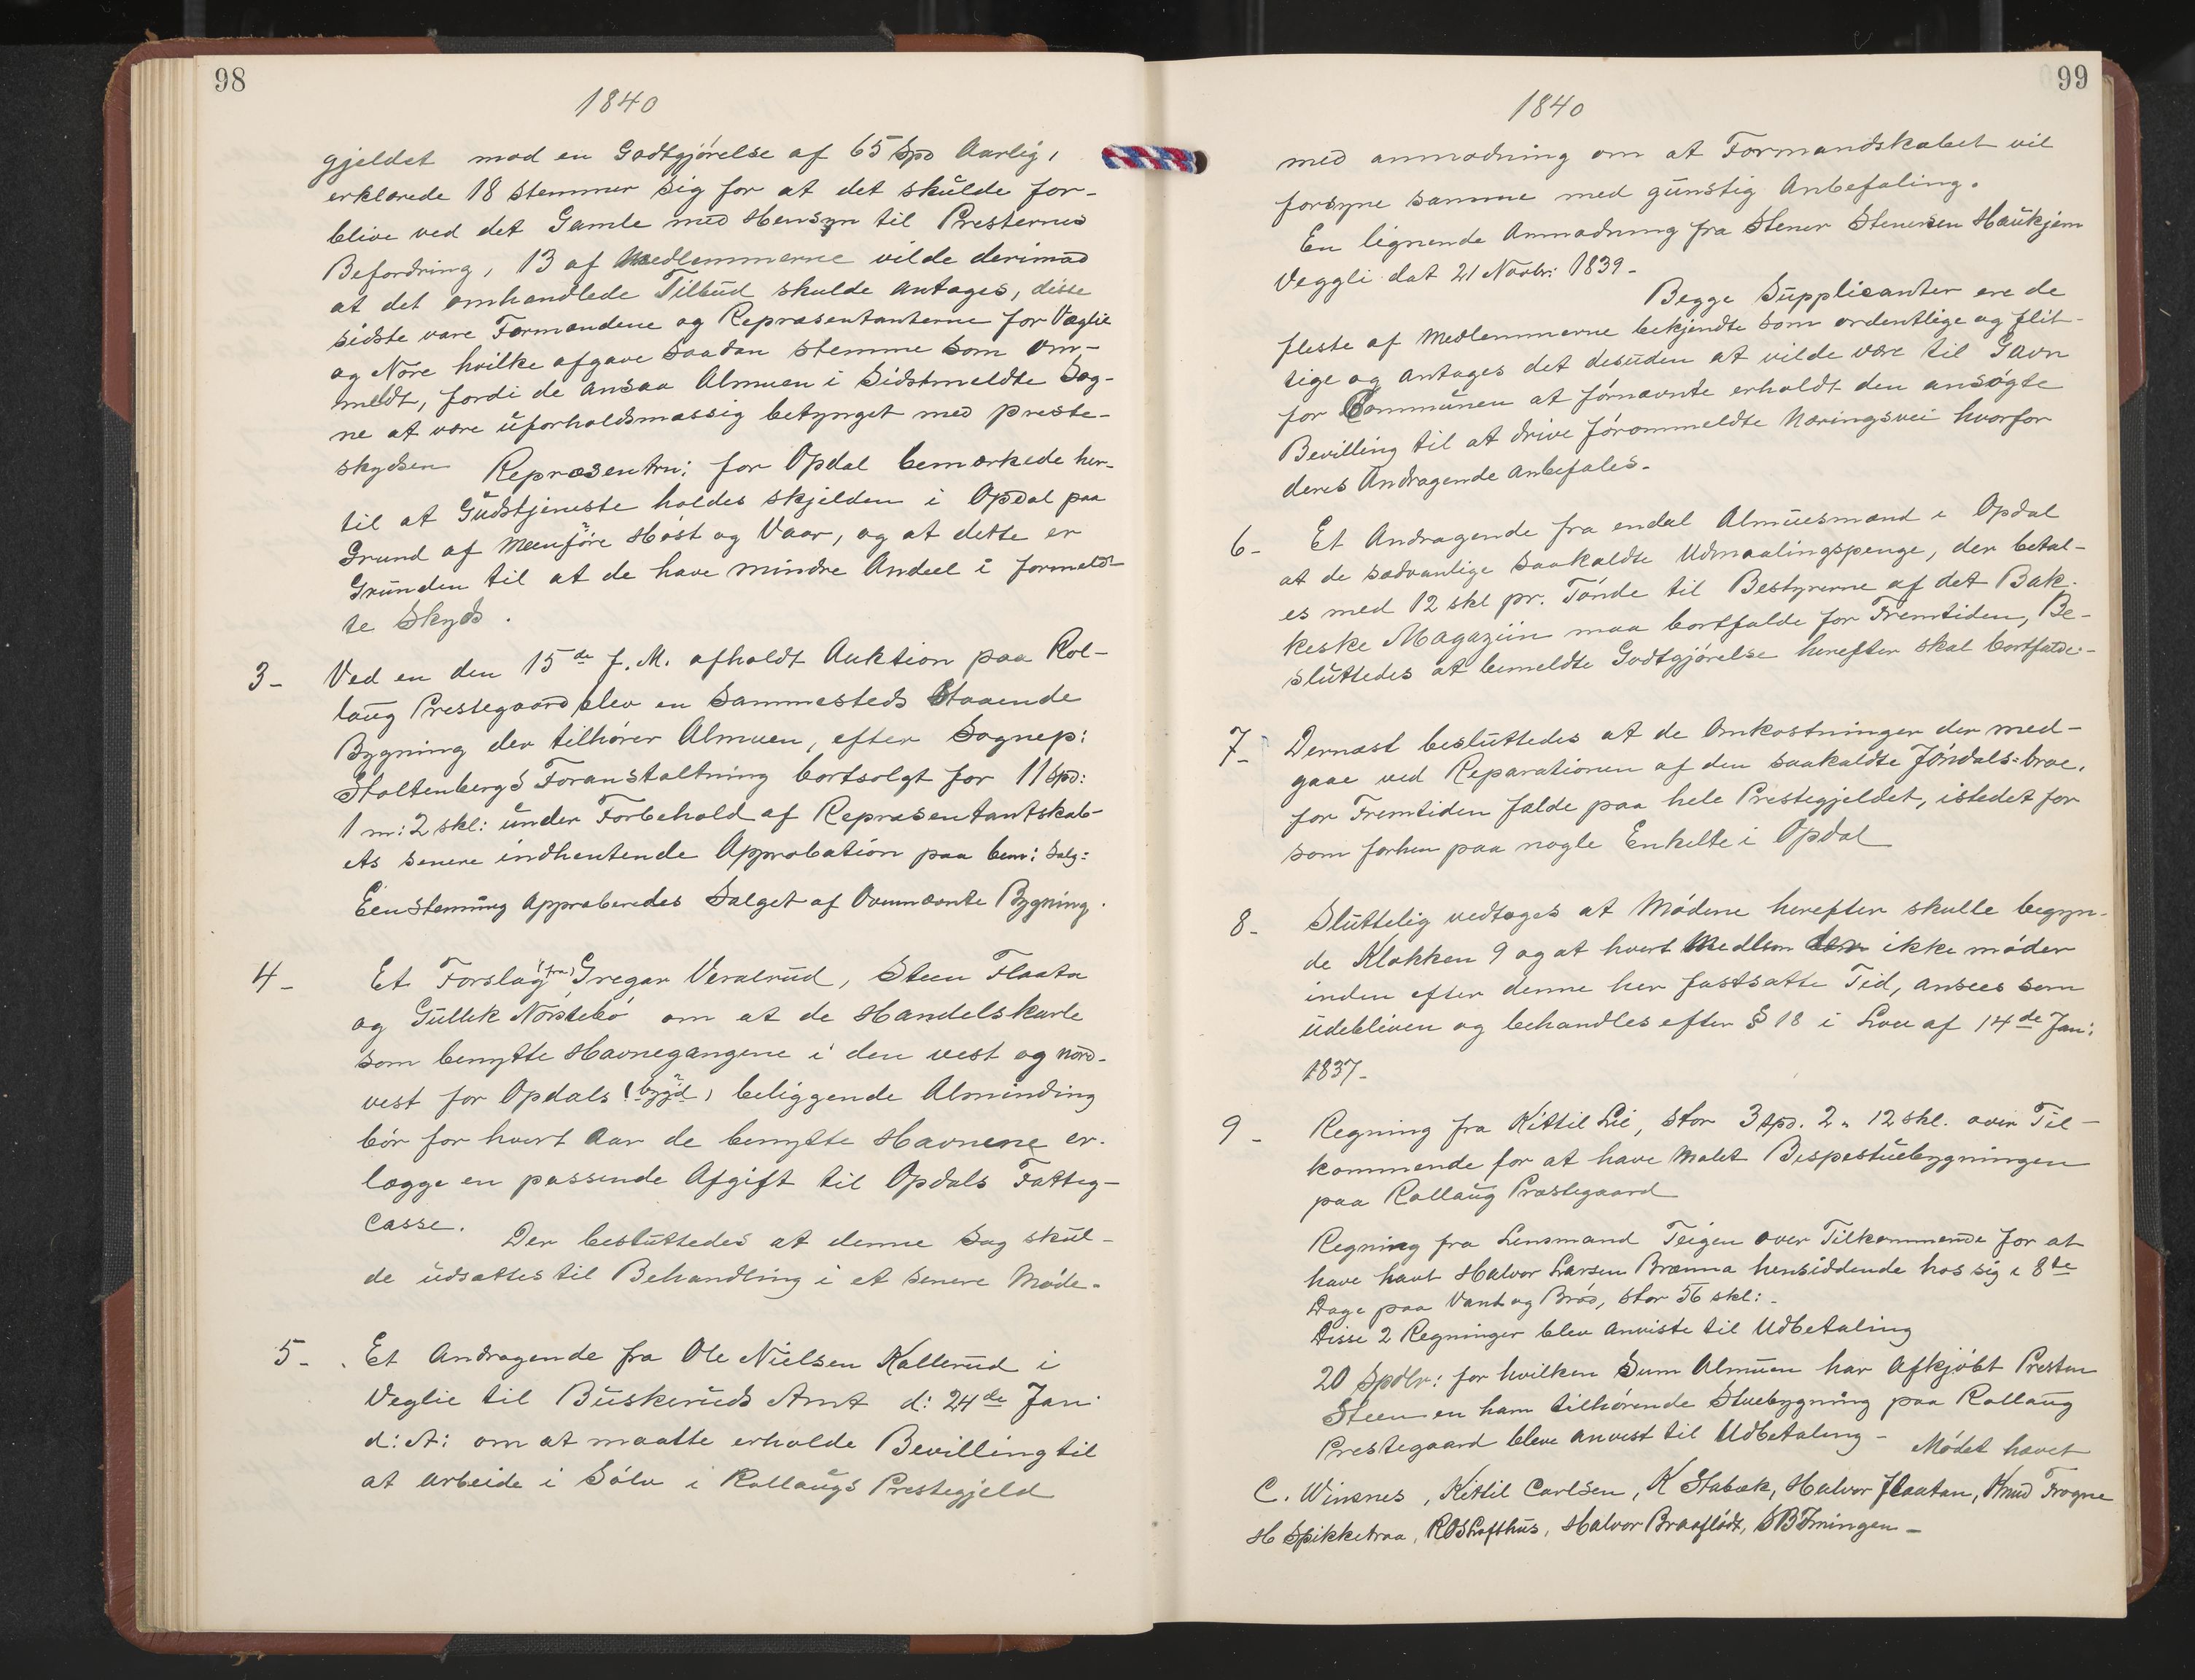 98
1840
gjeldet mod en Godtgjörelse af 65 Spd Aarlig,
erklærede 18 stemmer sig for at det skulde for-
blive ved det Gamle med Hensyn til Presternes
Befordring, 13 af Medlemmerne vilde derimod
at det omhandlede Tilbud skulde antages, disse
sidste vare Formændene og Repræsentanterne for Væglie
og Nore hvilke afgave saadan stemme som om-
meldt, fordi de ansaa Almuen i Sidstmeldte Sog-
ne at være uforholdsmæssig betynget med preste-
skydsen Repræsentrn: for Opdal bemærkede her-
til at Gudstjeneste holdes skjelden i Opdal paa
Grund af Meenföre Höst og Vaar, og at dette er
Grunden til at de have mindre Andeel i formeld-
te Skyds.
3- Ved en den 15de f. M. afholdt Auktion paa Rol-
laug Prestegaard blev en Sammesteds Staaende
Bygning der tilhörer Almuen, efter Sognep:
Stoltenbergs Foranstaltning bortsolgt for 11 Spd:
1 m: 2 skl: under Forbehold af Repræsentantskab-
ets senere indhentende Approbation paa bem: Salg:
Eenstemmig Approberedes Salget af Ovennævnte Bygning.
4- Et Forslag (fra) Gregar Veralrud, Steen Flaata
og Gullik Nörstebö om at de Handelskarle
som benytte Havnegangene i den vest og nord-
vest for Opdals (bygd) beliggende Alminding
bör for hvert Aar de benytte Havnene er-
lægge en passende Afgift til Opdals Fattig-
casse. Der besluttedes at denne Sag skul-
de udsættes til Behandling i et senere Möde-
5-. Et Andragende fra Ole Nielsen Kallerud i
Veglie til Buskeruds Amt d: 24de Jan
d: A: om at maatte erholde Bevilling til
at arbeide i Sölv i Rollaugs Prestegjeld
99
1840
med anmodning om at Formandskabet vil
forsyne samme med gunstig Anbefaling.
En lignende Anmodning fra Stener Stenersen Haukjem
Veggli dat 21 Novbr: 1839-
Begge Supplicanter ere de
fleste af Medlemmerne bekjendte som ordentlige og flit-
tige og antages det desuden at vilde være til Gavn
for Communen at förnævnte erholdt den ansögte
Bevilling til at drive förommeldte Næringsvei hvorfor
deres Andragende anbefales-
6- Et Andragende fra endel Almuesmænd i Opdal
at de sædvanlige saakaldte Udmaalingspenge, der betal-
es med 12 skl pr. Tönde til Bestyrerne af det Bak-
keske Magaziin maa bortfalde for Fremtiden, Be-
sluttedes at bemeldte Godtgjörelse herefter skal bortfalde-
7- Dernæst besluttedes at de Omkostninger der med-
gaae ved Reparationen af den saakaldte Jöndals-broe,
for Fremtiden falde paa hele Prestegjeldet, istedet for
som forhen paa nogle Enkelte i Opdal
8- Sluttelig vedtoges at Mödene herefter skulle begyn-
de Klokken 9 og at hvert Medlem der ikke möder
inden efter denne her fastsatte Tid, ansees som
udebliven og behandles efter § 18 i Lov af 14de Jan:
1837-
9- Regning fra Kittil Lie, stor 3 spd. 2 „ 12 skl. over Til-
kommende for at have Malet Bispestuebygningen
paa Rollaug Præstegaard
Regning fra Lensmand Teigen over Tilkommende for at
have havt Halvor Larsen Brænna hensiddende hos sig i 8te
Dage paa Vand og Bröd, stor 56 skl:-
Disse 2 Regninger blev anviste til Udbetaling
20 Spdlr: for hvilken Sum Almuen har Afkjöbt Presten
Steen en ham tilhörende Stuebygning paa Rollaug
Prestegaard bleve anvist til Udbetaling- Mödet hævet
C. Winsnes, Kittil Carlsen, K Stabæk, Halvor Flaatan, Knud Frogne
H Spikketraa, R O S Lofthus, Halvor Braaflödt, S B Imingen-